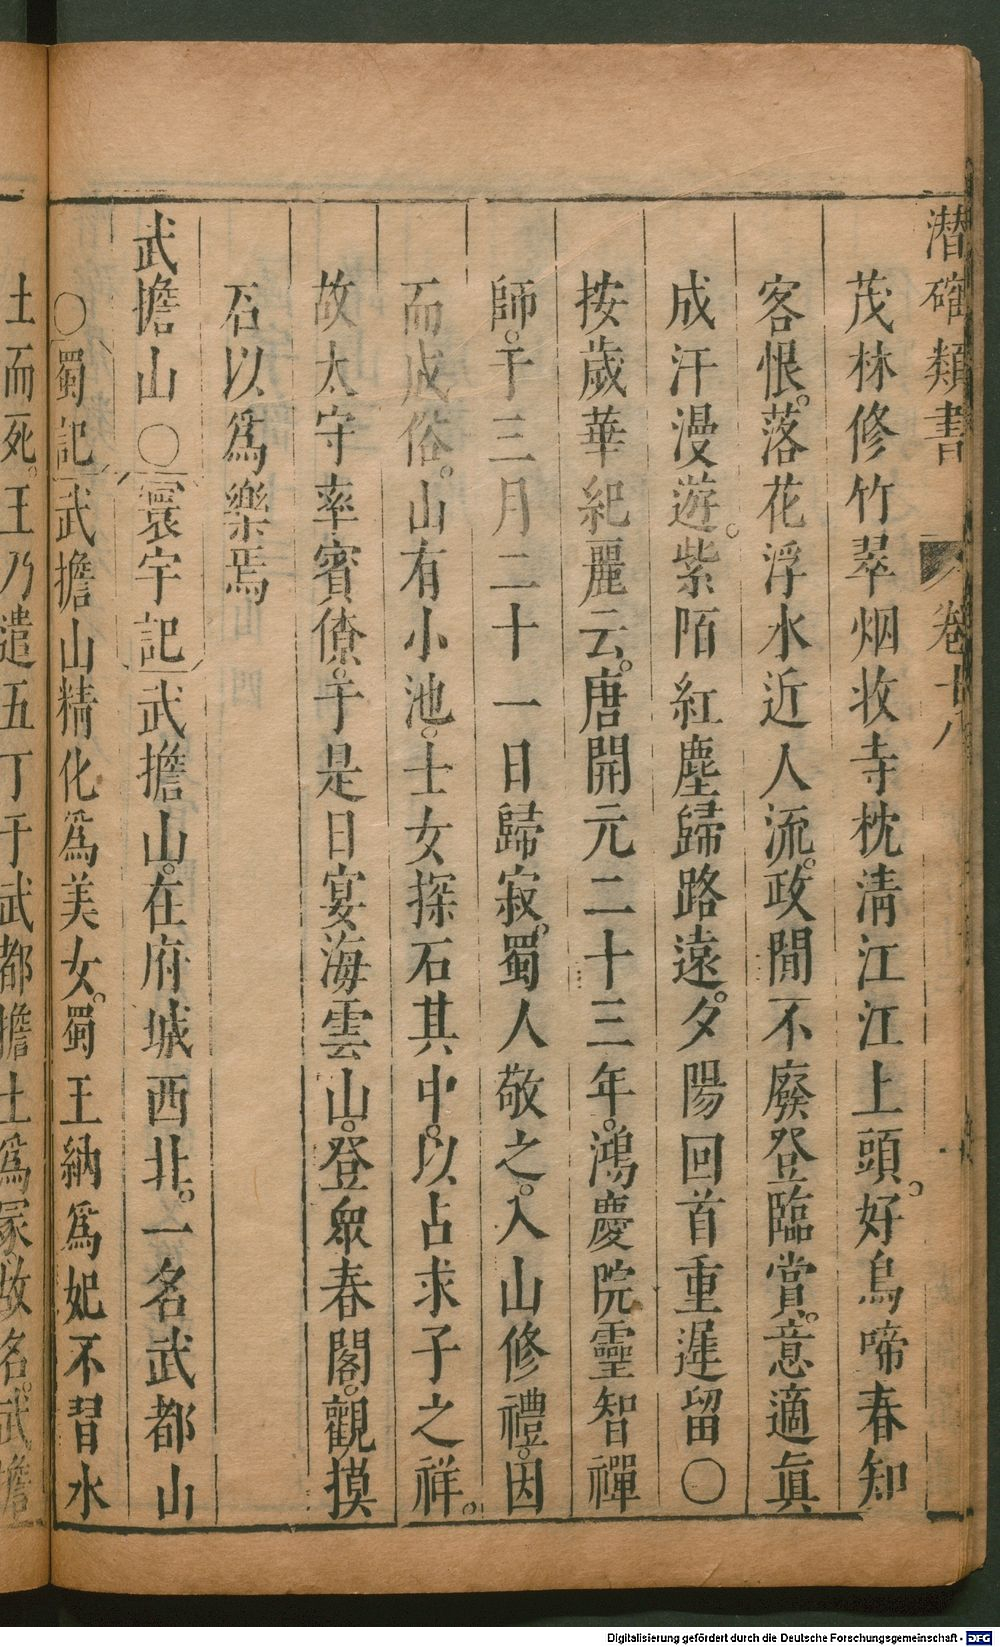 潜確類書 卷十八
茂林修竹翠烟收寺枕清江江上頭。好鳥啼春知
客恨。落花浮水近人流。政閒不廢登臨賞。意適眞
成汗漫遊。紫陌紅塵歸路遠。夕陽回首重遲留〇
按歲華紀麗云。唐開元二十三年。鴻慶院靈智禪
師。于三月二十一日歸寂。蜀人敬之。入山修禮。因
而成俗。山有小池。士女探石其中。以占求子之祥。
故太守率賓僚。于是日宴海雲山。登衆春閣。觀摸
石以爲樂焉
武擔山〇寰宇記武擔山。在府城西北。一名武都山
〇蜀記武擔山精化爲美女。蜀王納爲妃不習水
土而死。王乃遣五丁于武都擔土爲冢。故名。武擔
Digitalisierung gefördert durch die Deutsche Forschungsgemeinschaft - DFG